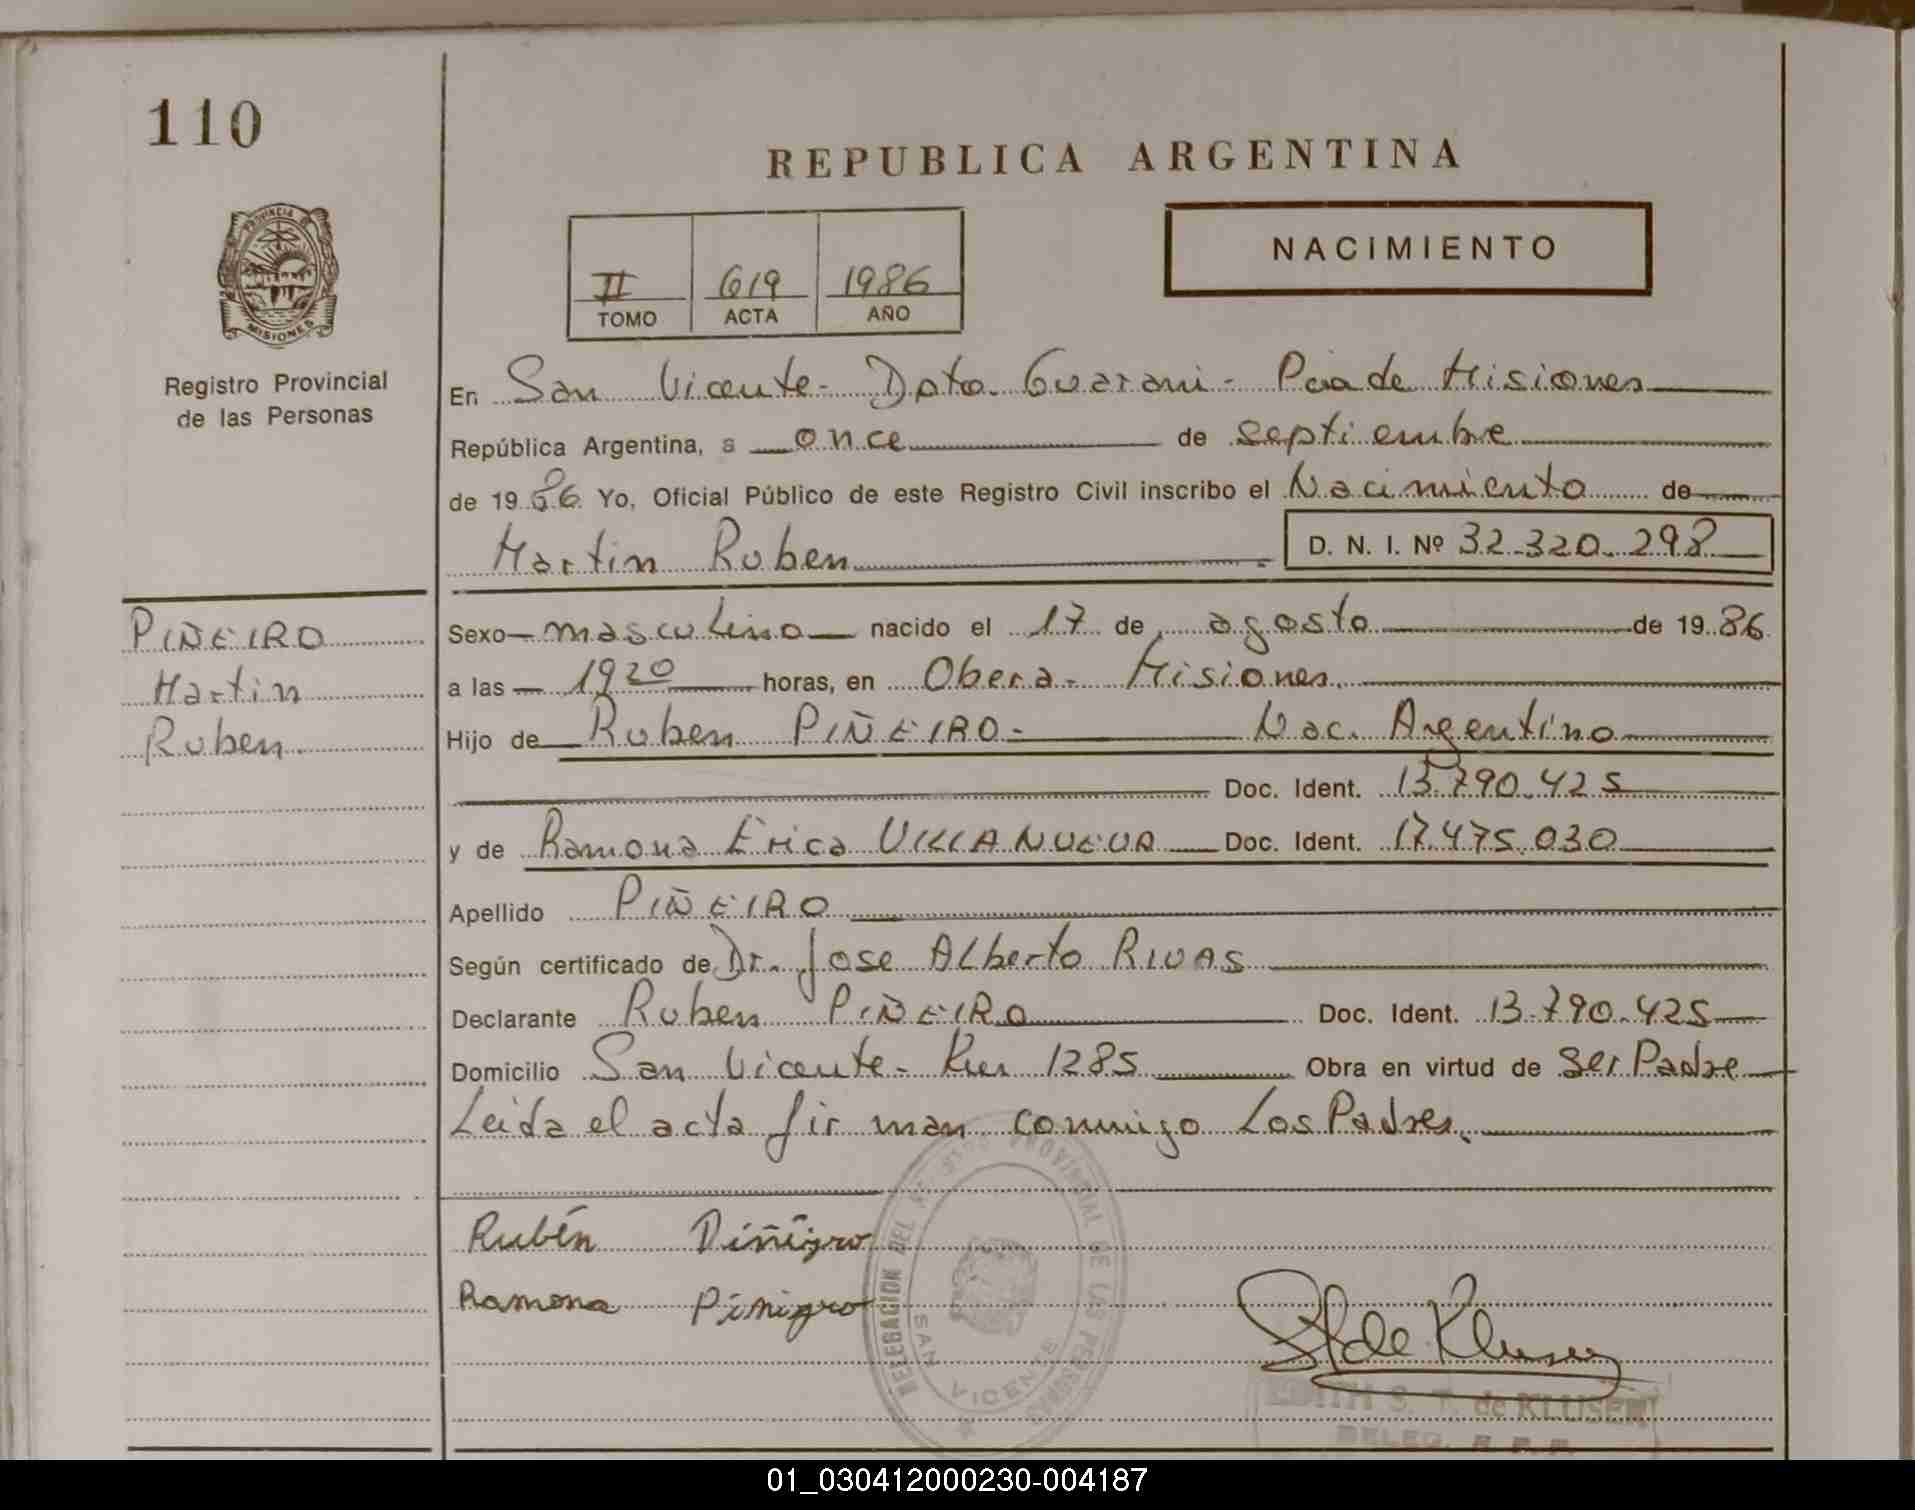 110
REPUBLICA ARGENTINA
NACIMIENTO
II 619 1986
TOMO ACTA AÑO
PROVINCIA DE
MISIONES
Registro Provincial
de las Personas
En San Vicente - Dpto. Guarani - Pcia de Misiones
República Argentina, a once de septiembre
de 1986 Yo, Oficial Público de este Registro Civil inscribo el Nacimiento de
Martin Ruben D. N. I. Nº 32.320.298
PIÑEIRO
Martin
Ruben
Sexo masculino nacido el 17 de agosto de 1986
a las 1920 horas, en Obera - Misiones
Hijo de Ruben PIÑEIRO - Nac. Argentino
Doc. Ident. 13.790.425
y de Ramona Erica VILLANUEVA Doc. Ident. 17.475.030
Apellido PIÑEIRO
Según certificado de Dr. Jose Alberto RIVAS
Declarante Ruben PIÑEIRO Doc. Ident. 13.790.425
Domicilio San Vicente - 1285 Obra en virtud de ser Padre
Leida el acta firman conmigo Los Padres.
Rubén Piñeiro
Ramona Piñeiro
DELEGACION DEL REGISTRO PROVINCIAL DE LAS PERSONAS
SAN VICENTE
de Klusen
EDITH S. T. de KLUSEN
DELEG. R. P. P.
01_030412000230-004187